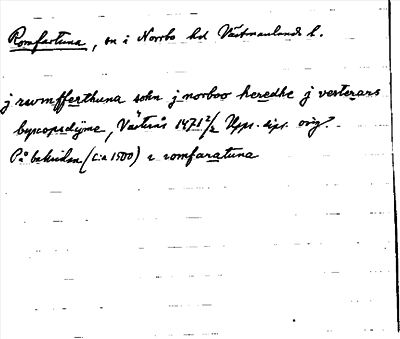 Romfartuna, sn i Norrbo hd Västmanlands l.
j rwmfferthuna sokn j norboo heredhe j vesterars
byscopsdÿme, Västerås 1471 2/2 Upps. dipl. orig.
På baksidan (c:a 1500) i romfaratuna